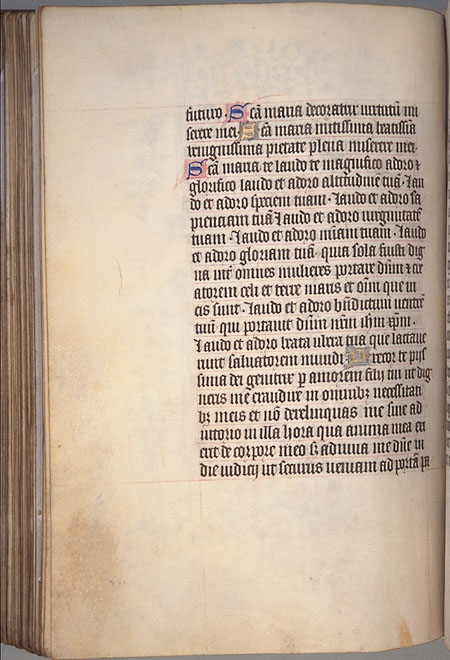 futuro. Sc̄a maria decoratrix virtutū mi
serere mei. Sc̄a maria mitissima beatissīa
benignissima pietate plena miserere mei.
Sc̄a maria te laudo te magnifico adoro ⁊
glorifico laudo et adoro altitudinē tuā. Lau
do et adoro speciem tuam. Laudo et adoro sa
pienciam tuā Laudo et adoro virginitatē
tuam. Laudo et adoro mīam tuam. Laudo
et adoro gloriam tuā. quia sola fuisti dig
na int̄ omnes mulieres portare dūm ⁊ cre
atorem celi et terre maris et oīm que in
eis sunt. Laudo et adoro bn̄dictum ventrē
tuū qui portauit dūm nr̄m ihm xp̄m.
Laudo et adoro beata vbera tua que lactaue
runt saluatorem mundi. Precor te piis
sima dei genitrix ꝑ amorem filij tui ut dig
neris me exaudire in omnibꝫ necessitati
bꝫ meis et nō derelinquas me sine ad
iutorio in illa hora qua anima mea ex
erit de corpore meo sꝫ adiuua me dn̄e in
die iudicij ut securus veniam ad portā pa